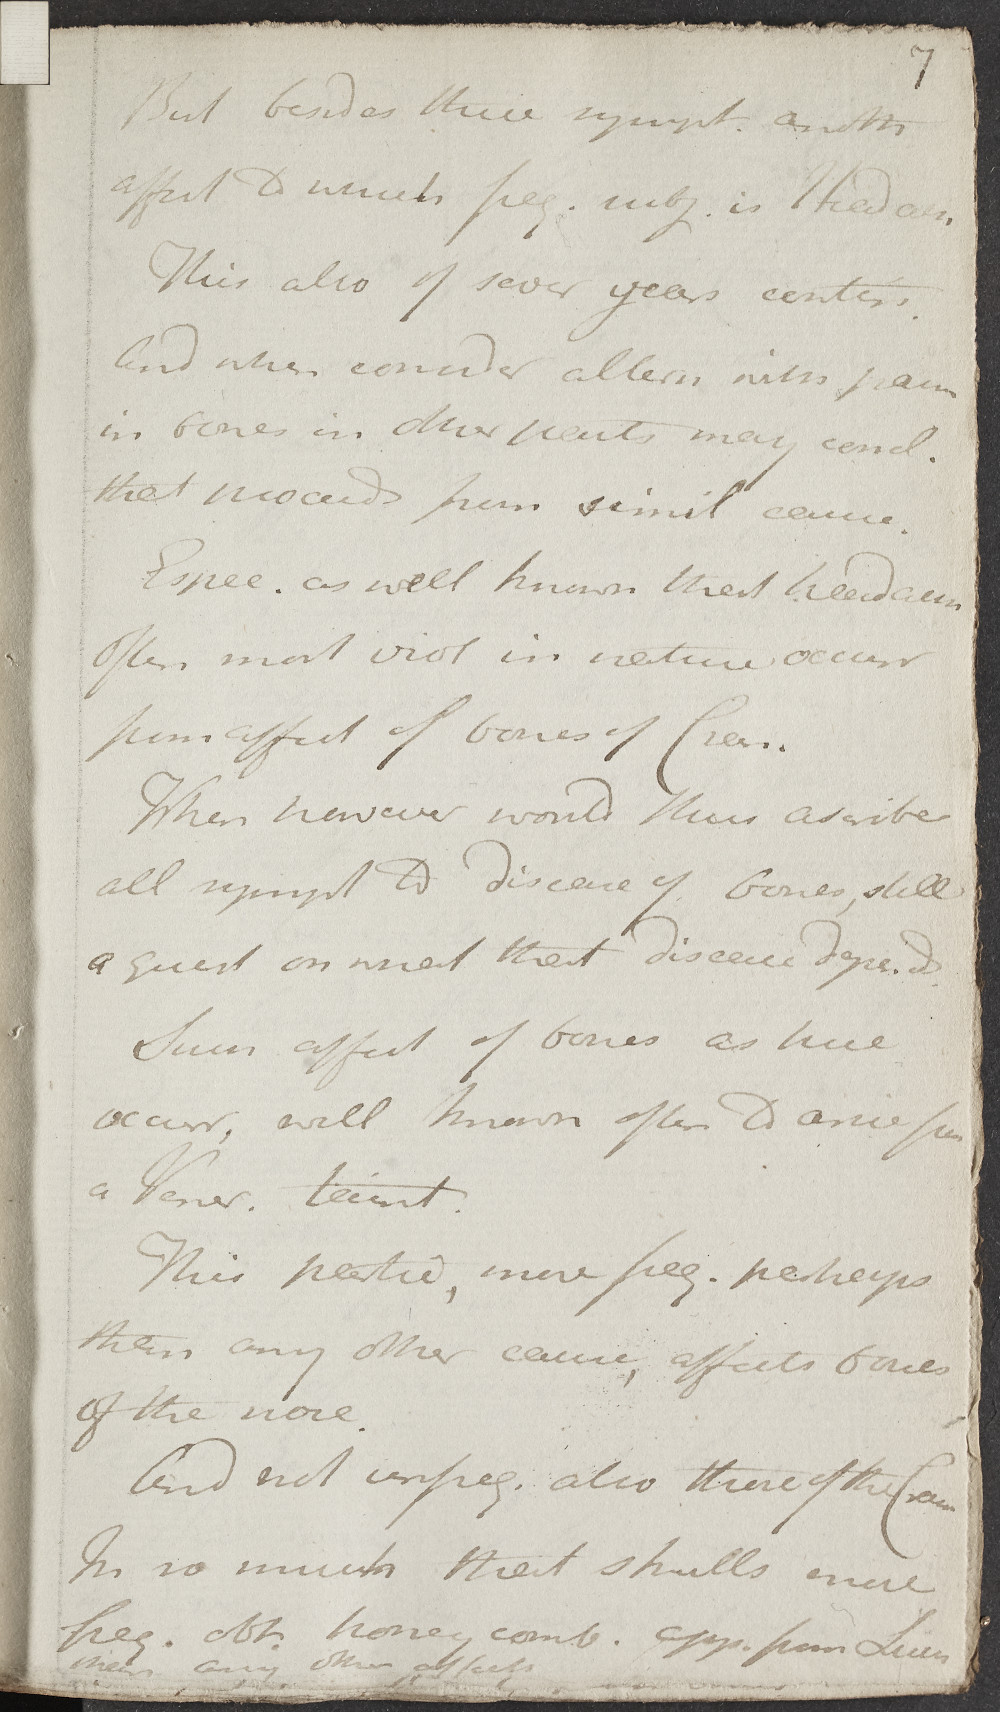 7
But besides these sympt. anoth
affect to which freq. subj. is Headach.
This also of sever years contin.
And when consider altern with pain
in bones in other parts may concl.
that proceeds from simil cause.
Espec. as well known that headach
often most viol in nature occurr
from affect of bones of Cran.
When however would thus ascribe
all sympt to disease of bones, still
a quest on what that disease depend.
Such affect of bones as here
occurr, well known often to arise from
a Vener. taint.
This partic, more freq. perhaps
than any other cause, affects bones
of the nose.
And not unfreq. also those of the Cran
In so much that skulls more
freq. obt. honey comb. app. from Lues
than any other affect